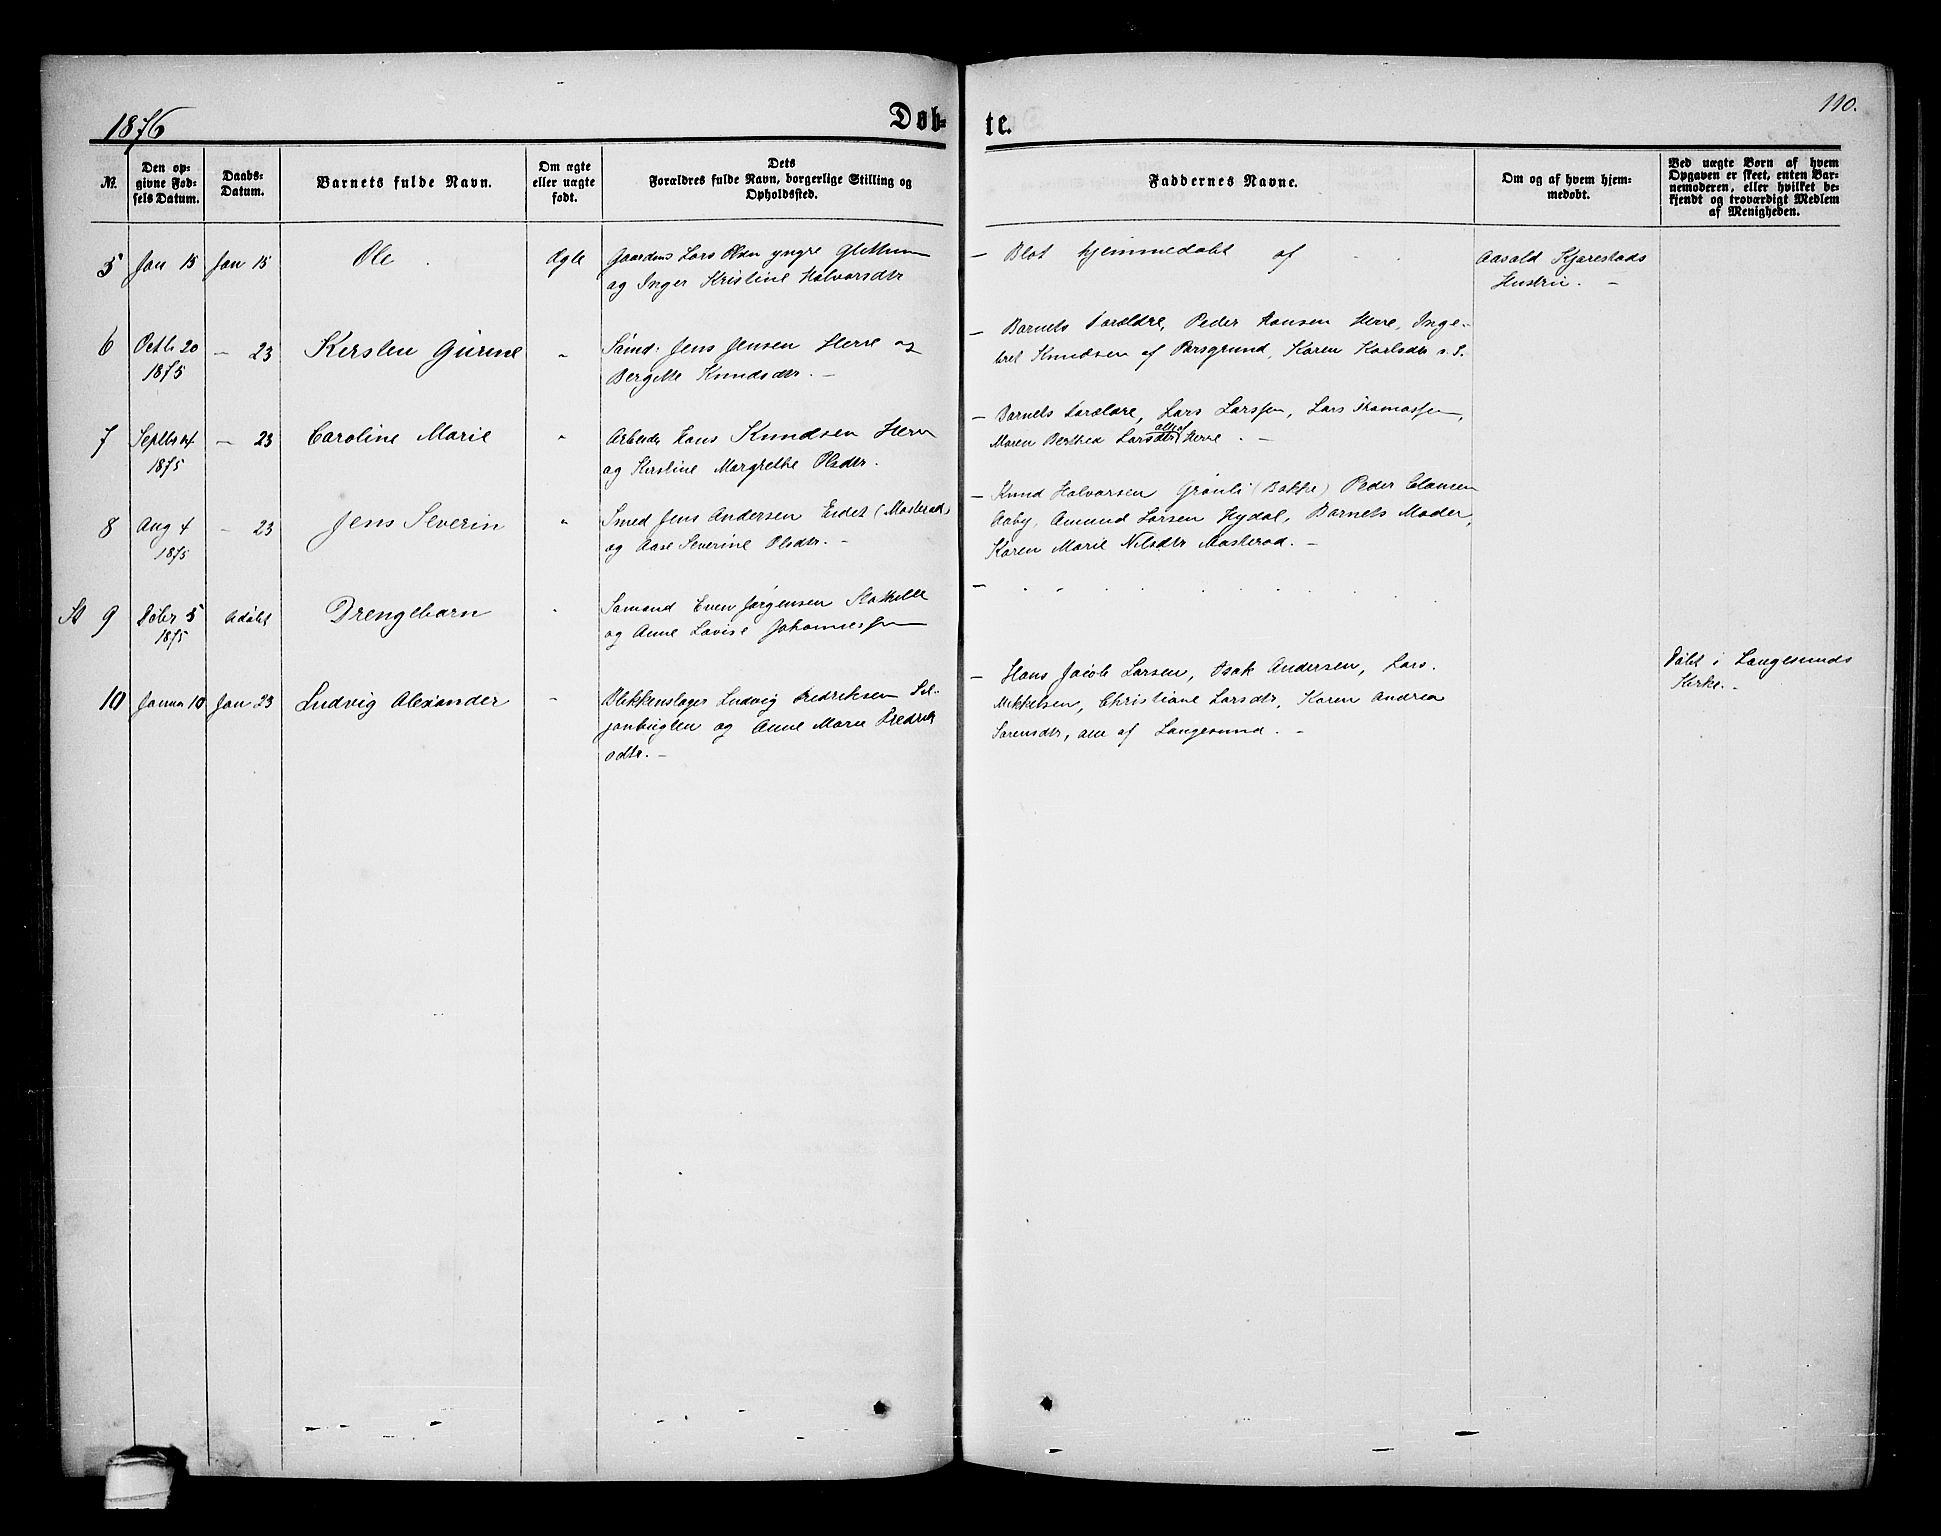 1876
Døb-
te.
110.
№.
Den op-
givne Fød-
sels Datum.
Daabs-
Datum.
Barnets fulde Navn.
Om ægte
eller uægte
født.
Dets
Forældres fulde Navn, borgerlige Stilling og
Opholdssted.
Faddernes Navne.
Om og af hvem hjem-
medøbt.
Ved uægte Børn af hvem
Opgaven er skeet, enten Bar-
nemoderen, eller hvilket be-
kjendt og troværdigt Medlem
af Menigheden.
5 Jan 15 Jan 15 Ole Ægte
Gaardms Lars Olsen yngre
og Inger Kristine Halvorsdtr
– Blot hjemmedøbt af
Aasold Kjørestads
Hustru. –
6 Octb 20 – 23 Kirsten Gurine "
1875
Sømd. Jens Jensen Herre og
Bergitte Knudsdtr. –
– Barnets Forældre, Peder Hansen Herre, Inge-
bret Knudsen af Porsgrund, Karen Karlsdtr s. S.
7 Septb 14 – 23 Caroline Marie "
1875
Arbeider Hans Knudsen Herre
og Kirstine Margrethe Olsdtr.
– Barnets Forældre, Lars Larssen, Lars Thomassen,
Maren Berthea Larsdtr alle af Herre. –
8 Aug 4 – 23 Jens Severin "
1875
Smed Jens Andersen Eidet (Mosterød)
og Aase Severine Olsdtr. –
– Knud Halvorsen Grønli (Bakke) Peder Clausen
Aaby, Amund Larsen Hydal, Barnets Moder,
Karen Marie Nilsdtr Mosterød. –
9 5 udøbt Drengebarn "
1875
Sømand Even Jørgensen Stathelle
og Anne Lovise Johannessen
–
10 Januar 10 Jan 23 Ludvig Alexander "
Blikkenslager Ludvig Fredriksen Sil-
janbugten og Anne Marie Fredrik
sdtr. –
– Hans Jacob Larsen, Isak Andersen, Lars
Mikkelsen, Christiane Larsdtr, Karen Andrea
Sørensdtr, alle af Langesund. –
Døbt i Langesunds
Kirke. –